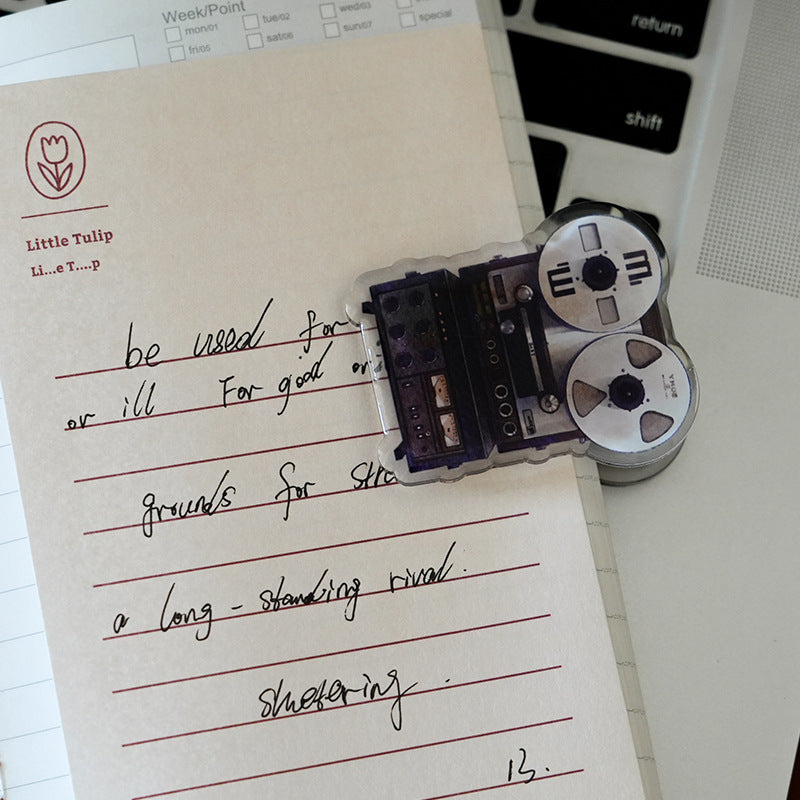 Week/Point
mon/01 tue/02 wed/03
fri/05 sat/06 sun/07 special
return
shift
Little Tulip
Li...e T....p
be used for
or ill For good or
grounds for
a long-standing rival.
13.